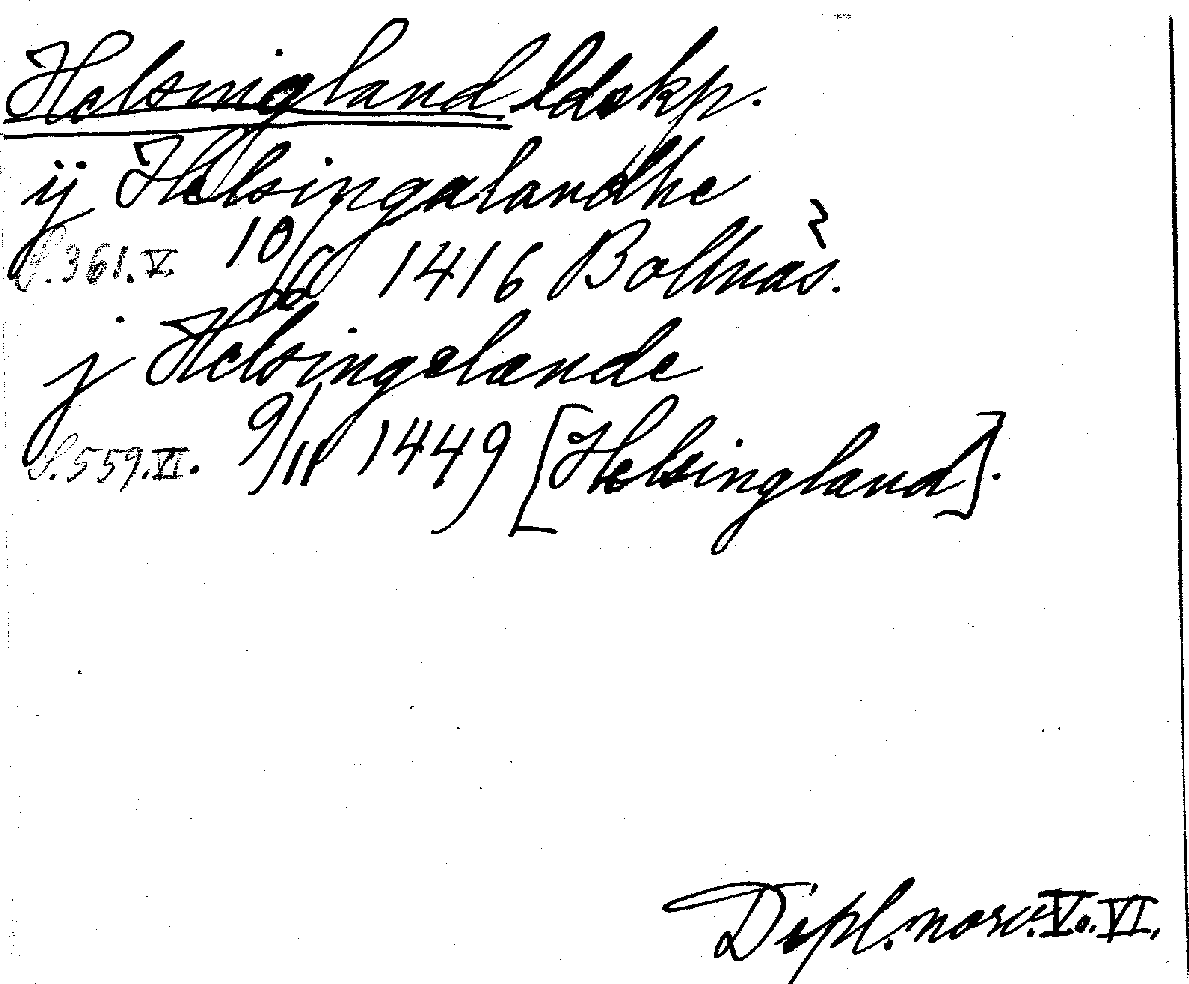 Helsingland ldskp.
ij Helsingalandhe
S.361.V. 10/10 1416 Bollnäs.
j Helsingelande
S.559.VI. 9/11 1449 [Helsingland].
Dipl. norv. V o. VI.